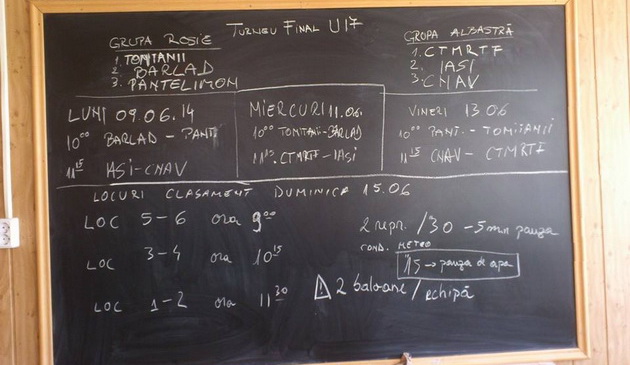 TURNEU FINAL U17
GRUPA ROȘIE
1. TOMITANII
2. BARLAD
3. PANTELIMON
GRUPA ALBASTRĂ
1. CTMRTF
2. IASI
3. CNAV
LUNI 09.06.14
10⁰⁰ BARLAD - PANT
11¹⁵ IASI - CNAV
MIERCURI 11.06.
10⁰⁰ TOMITANII - BARLAD
11¹⁵ CTMRTF - IASI
VINERI 13.06
10⁰⁰ PANT. - TOMITANII
11¹⁵ CNAV - CTMRTF
LOCURI CLASAMENT DUMINICA 15.06
LOC 5-6 ora 9⁰⁰
LOC 3-4 ora 10¹⁵
LOC 1-2 ora 11³⁰
2 repr. /30 - 5 min pauza
COND. METEO
15 → pauza de apa
! 2 baloane / echipă